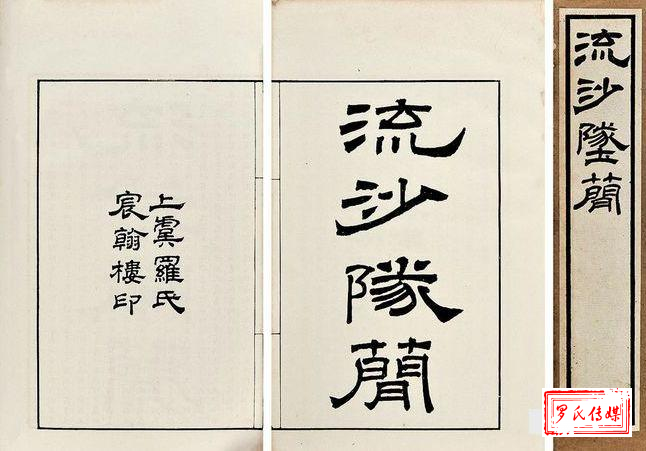 流沙墜簡
流沙隊簡
上虞羅氏
宸翰樓印
罗氏传媒